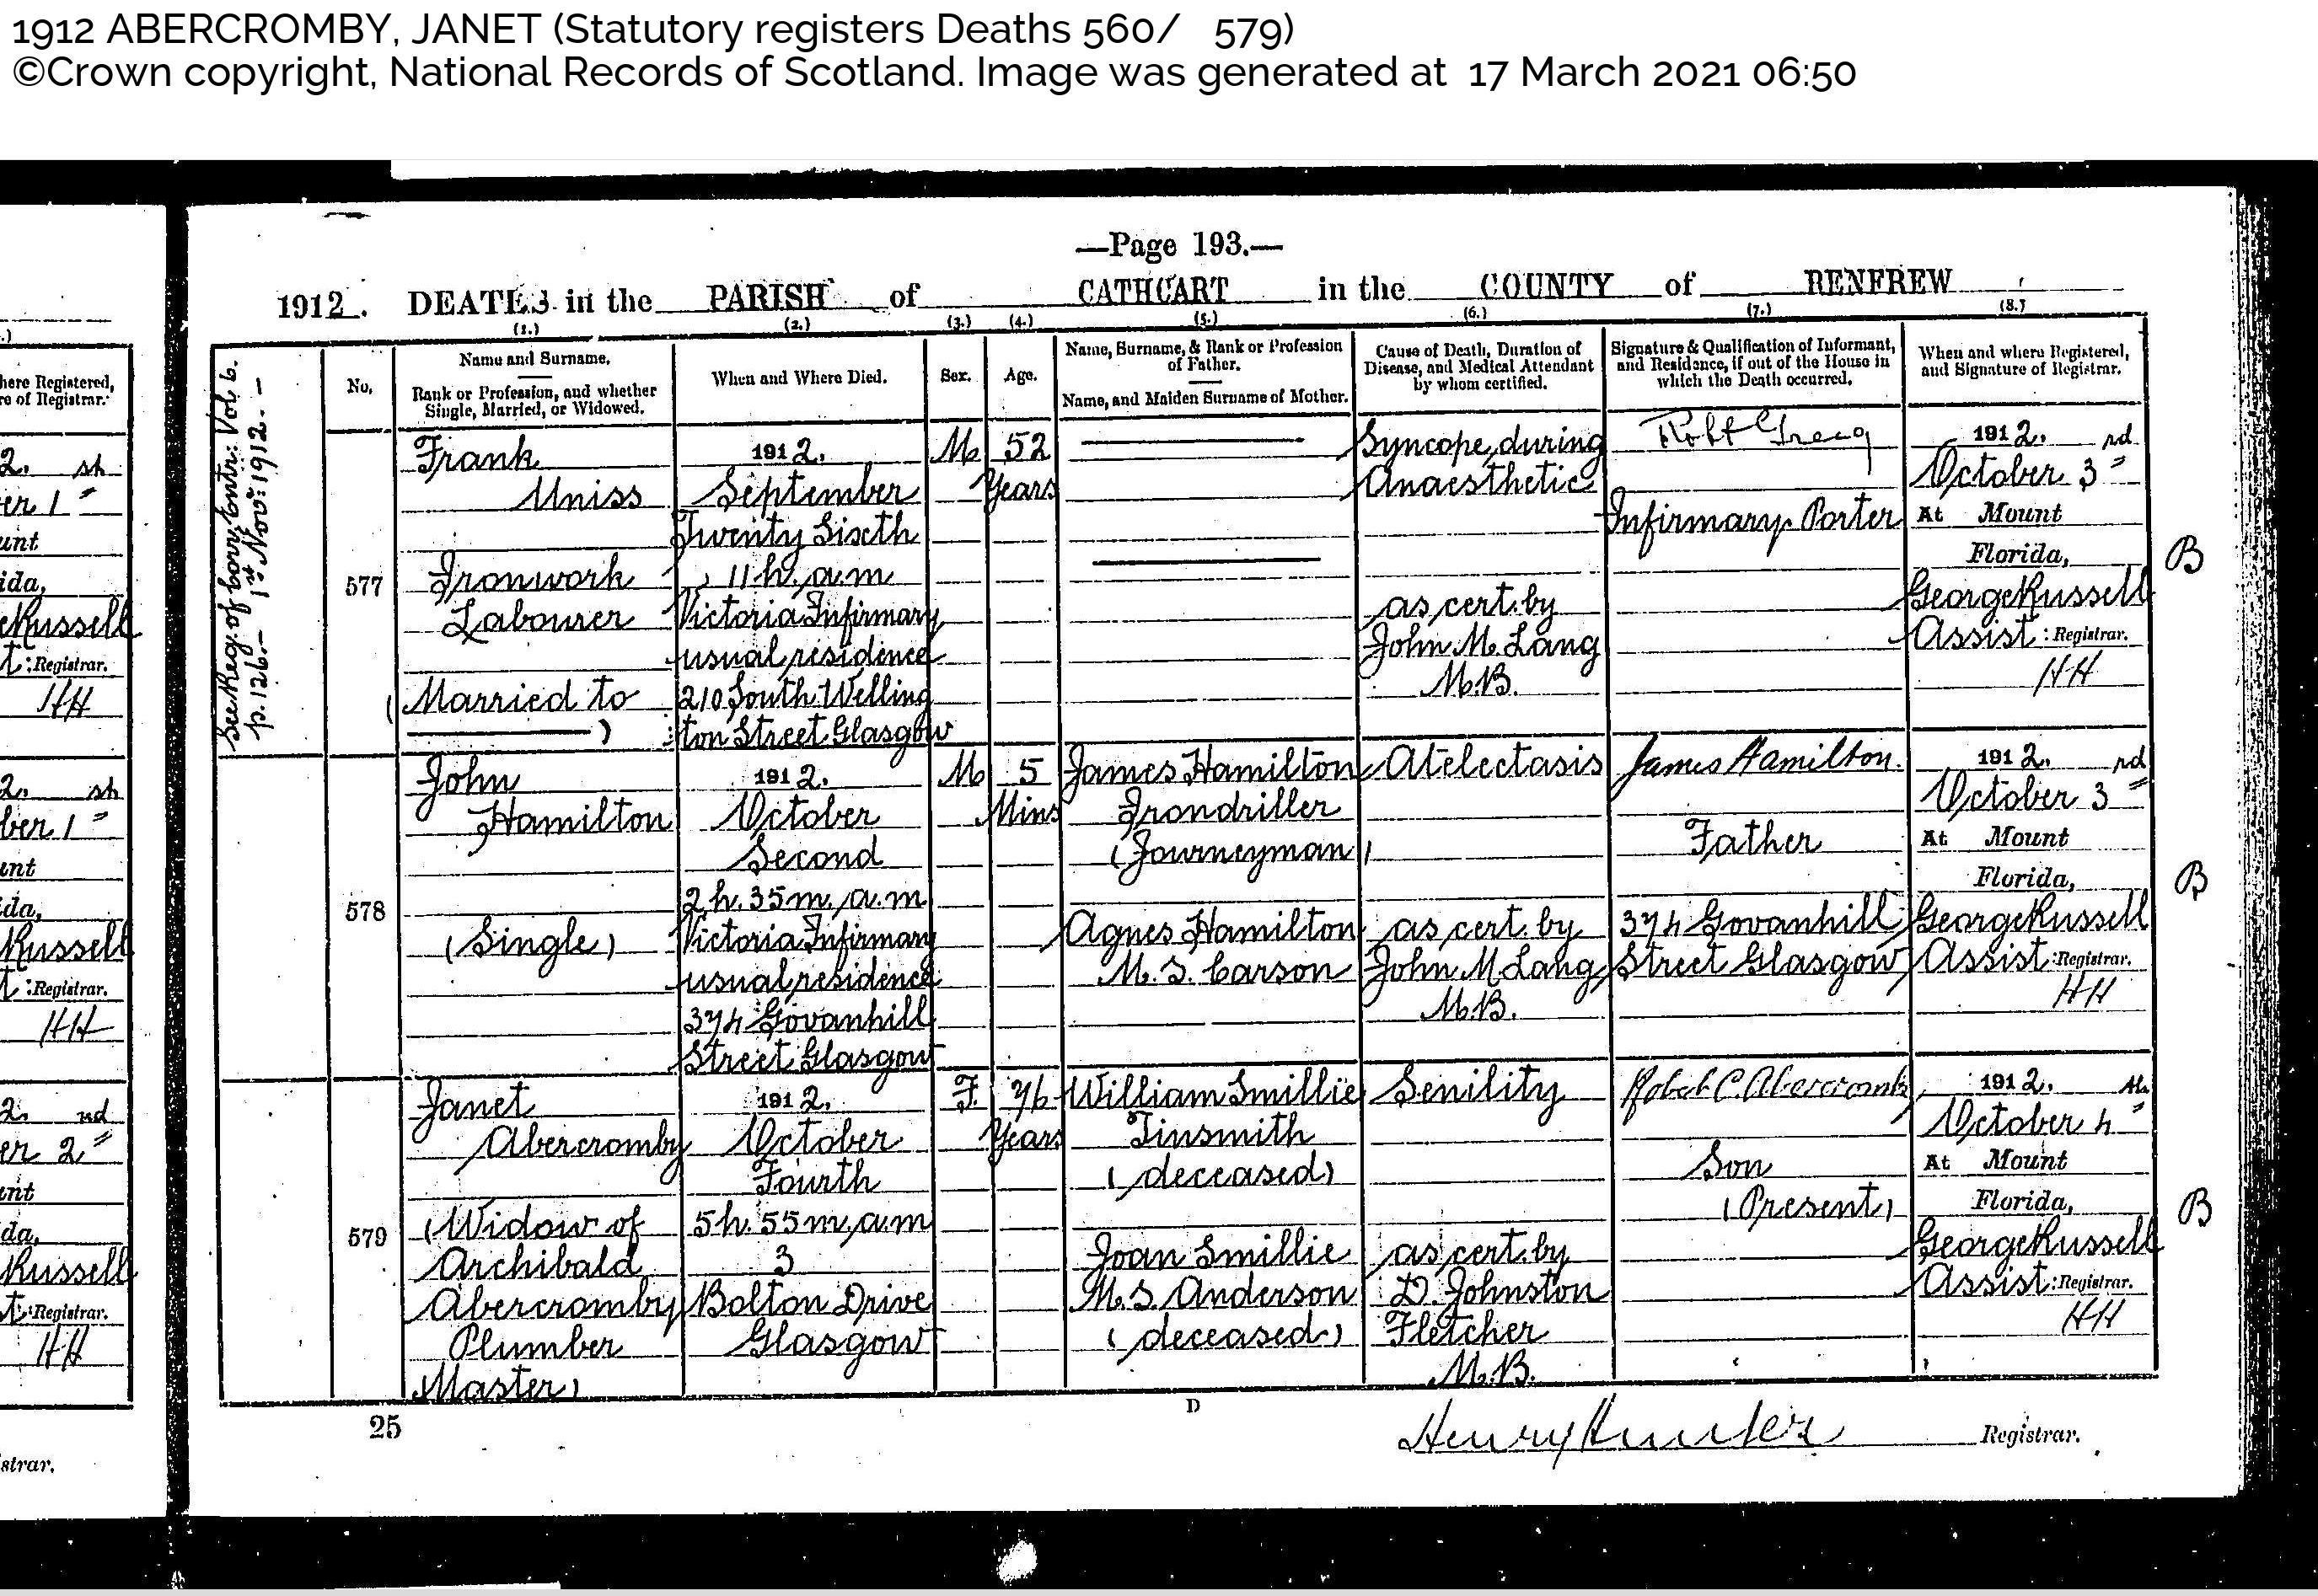 1912 ABERCROMBY, JANET (Statutory registers Deaths 560/ 579)
©Crown copyright, National Records of Scotland. Image was generated at 17 March 2021 06:50
—Page 193.—
1912. DEATHS in the PARISH of CATHCART in the COUNTY of RENFREW
(1.) (2.) (3.) (4.) (5.) (6.) (7.) (8.)
No.
Name and Surname.
Rank or Profession, and whether
Single, Married, or Widowed.
When and Where Died.
Sex.
Age.
Name, Surname, & Rank or Profession
of Father.
Name, and Maiden Surname of Mother.
Cause of Death, Duration of
Disease, and Medical Attendant
by whom certified.
Signature & Qualification of Informant,
and Residence, if out of the House in
which the Death occurred.
When and where Registered,
and Signature of Registrar.
See Reg. of corr. entr: Vol. 6.
p. 126.— 1st Nov: 1912.—
577
Frank
Uniss
Ironwork
Labourer
(Married to
)
1912.
September
Twenty Sixth
11 h. a.m
Victoria Infirmary
usual residence
210 South Welling
ton Street Glasgow
M
52
Years
Syncope, during
Anaesthetic
as cert. by
John M. Lang
M.B.
Robt Greig
Infirmary Porter
1912. rd
October 3"
At Mount
Florida,
George Russell
Assist: Registrar.
HH
B
578
John
Hamilton
(Single)
1912.
October
Second
2 h. 35 m. a.m
Victoria Infirmary
usual residence
374 Govanhill
Street Glasgow
M
5
Mins
James Hamilton
Irondriller
(Journeyman)
Agnes Hamilton
M.S. Carson
Atelectasis
as cert. by
John M. Lang
M.B.
James Hamilton.
Father
374 Govanhill
Street Glasgow
1912. rd
October 3"
At Mount
Florida,
George Russell
Assist: Registrar.
HH
B
579
Janet
Abercromby
(Widow of
Archibald
Abercromby
Plumber
Master)
1912.
October
Fourth
5 h. 55 m. a.m
3
Bolton Drive
Glasgow
F.
76
Years
William Smillie
Tinsmith
(deceased)
Joan Smillie
M.S. Anderson
(deceased)
Senility
as cert. by
D. Johnston
Fletcher
M.B.
Robert C. Abercromby
Son
(Present)
1912. th
October 4"
At Mount
Florida,
George Russell
Assist: Registrar.
HH
B
25
D
Henry Hunter
Registrar.